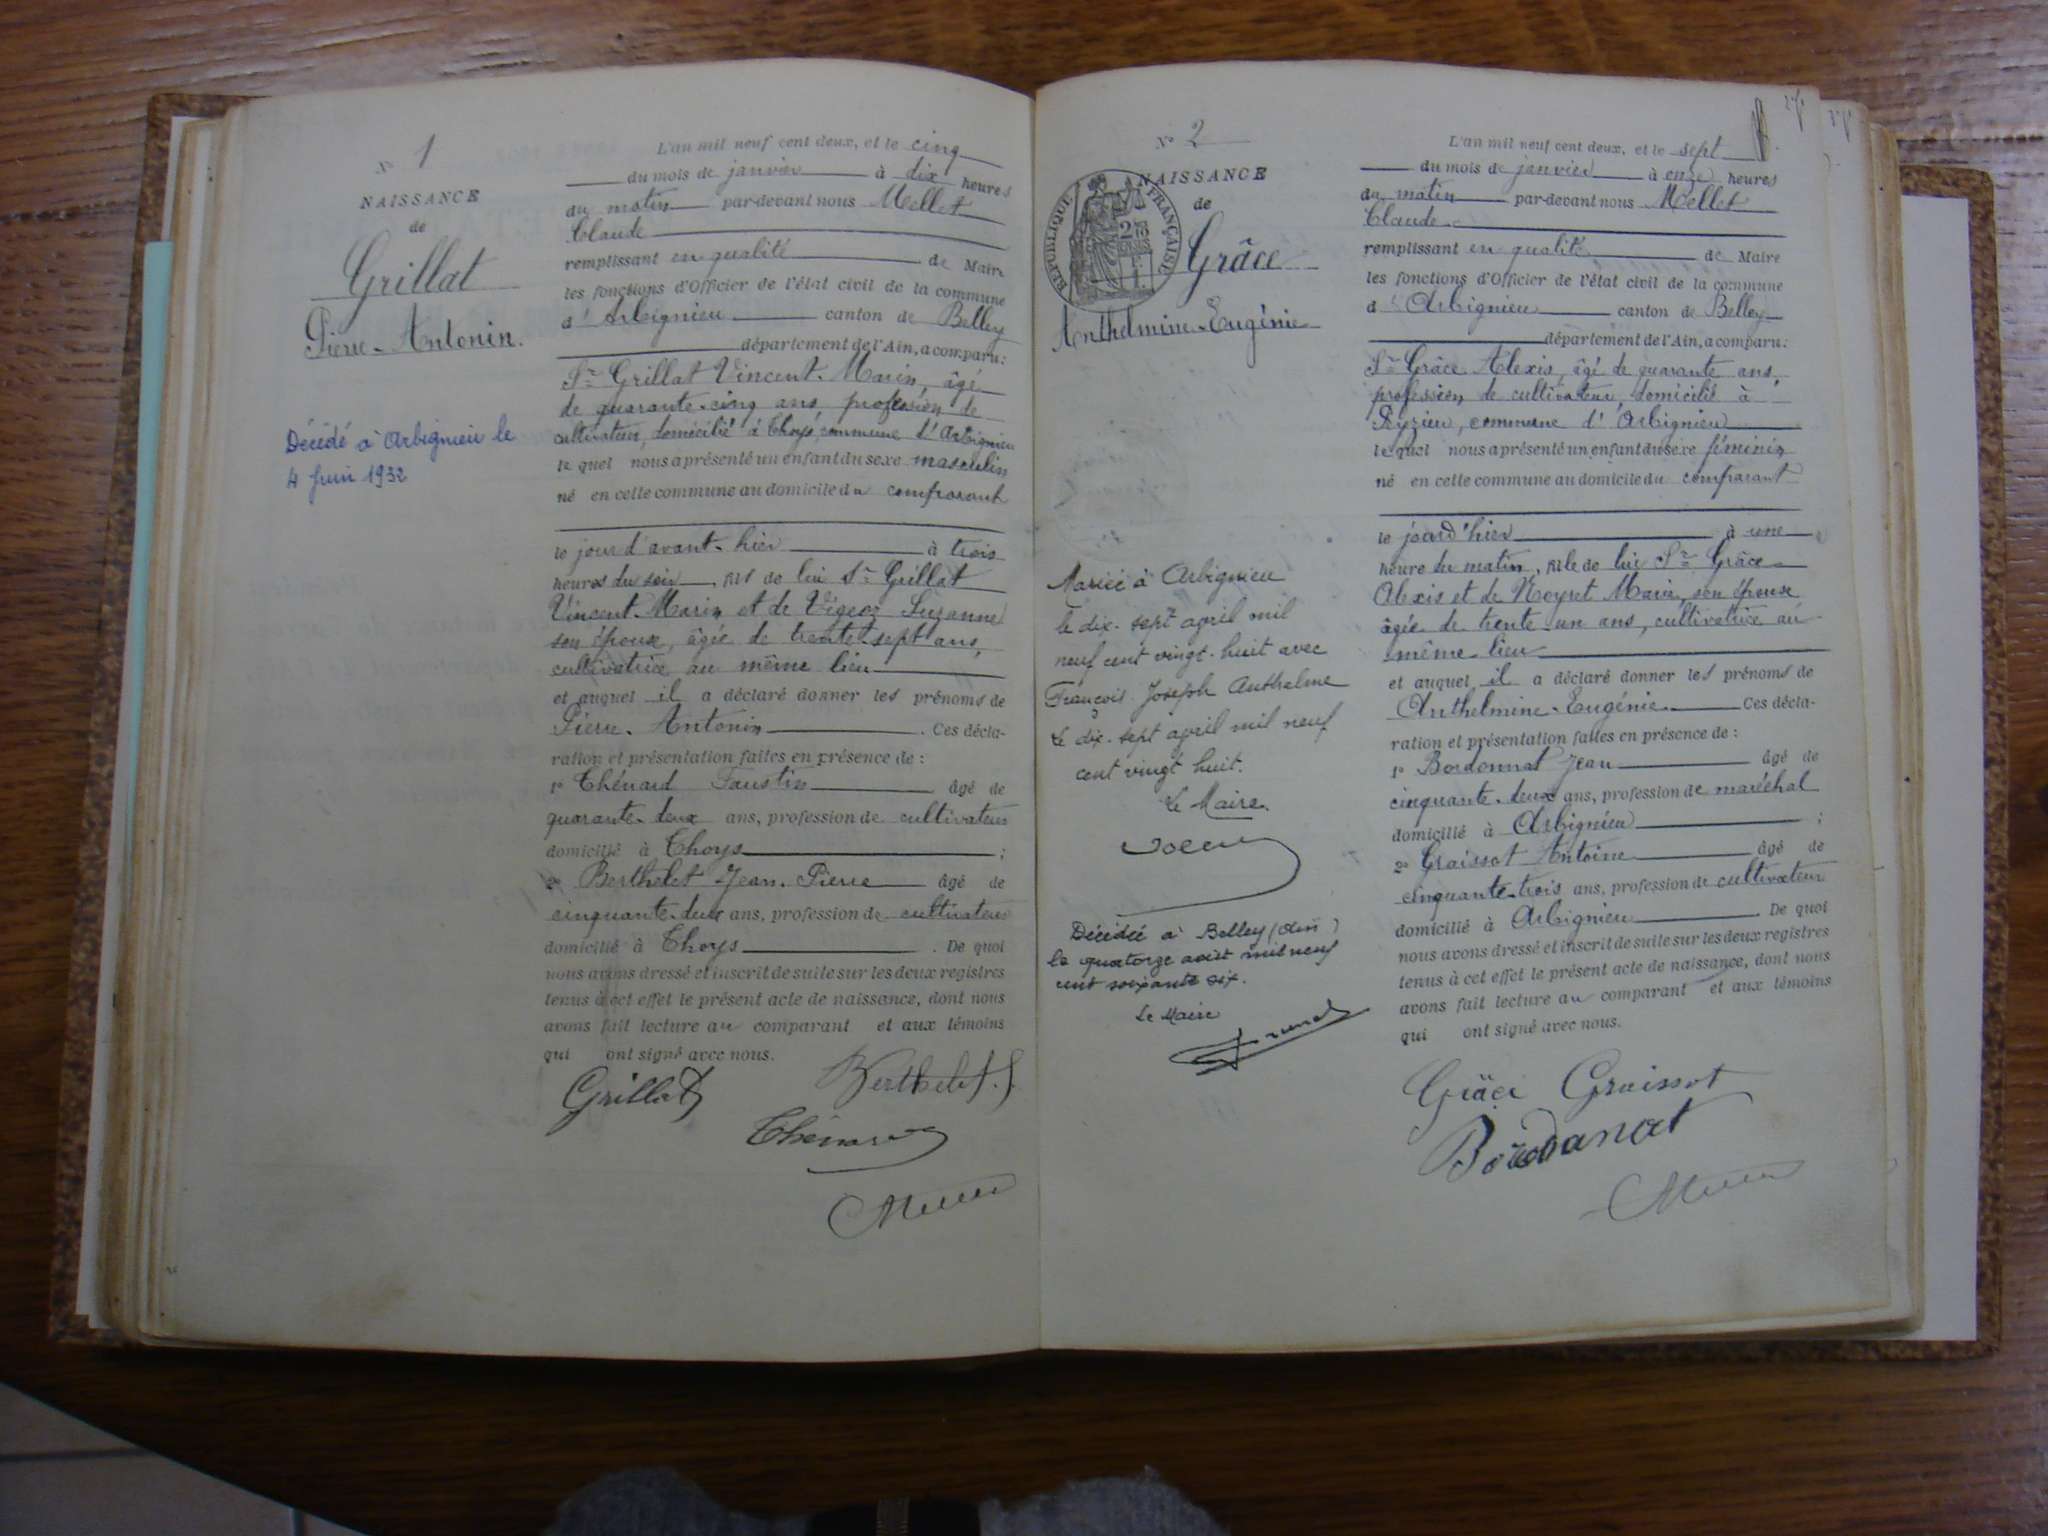 N° 1
NAISSANCE
de
Grillat
Pierre-Antonin.
Décédé à Arbignieu le
4 juin 1932
L'an mil neuf cent deux, et le cinq
du mois de janvier à dix heures
du matin par-devant nous Mellet
Claude
remplissant en qualité de Maire
les fonctions d'Officier de l'état civil de la commune
d'Arbignieu canton de Belley
département de l'Ain, a comparu :
Sr Grillat Vincent-Marin, âgé
de quarante-cinq ans, profession de
cultivateur, domicilié à Thoys, commune d'Arbignieu
lequel nous a présenté un enfant du sexe masculin
né en cette commune au domicile du comparant
le jour d'avant-hier à trois
heures du soir, fils de lui Sr Grillat
Vincent-Marin et de Vigeoz Suzanne
son épouse, âgée de trente-sept ans,
cultivatrice au même lieu
et auquel il a déclaré donner les prénoms de
Pierre-Antonin. Ces décla-
ration et présentation faites en présence de :
1° Thénard Faustin âgé de
quarante-deux ans, profession de cultivateur
domicilié à Thoys ;
2° Berthelet Jean-Pierre âgé de
cinquante-deux ans, profession de cultivateur
domicilié à Thoys. De quoi
nous avons dressé et inscrit de suite sur les deux registres
tenus à cet effet le présent acte de naissance, dont nous
avons fait lecture au comparant et aux témoins
qui ont signé avec nous.
Grillat
Berthelet J.
Thénard
N° 2
NAISSANCE
de
RÉPUBLIQUE FRANÇAISE
Grâce
Anthelmine-Eugénie
Mariée à Arbignieu
le dix-sept april mil
neuf cent vingt-huit avec
François Joseph Anthelme
Le dix-sept april mil neuf
cent vingt huit.
Le Maire.
Décédée à Belley (Ain)
le quatorze août mil neuf
cent soixante six.
Le Maire
L'an mil neuf cent deux, et le sept
du mois de janvier à onze heures
du matin par-devant nous Mellet
Claude
remplissant en qualité de Maire
les fonctions d'Officier de l'état civil de la commune
d'Arbignieu canton de Belley
département de l'Ain, a comparu :
Sr Grâce Alexis, âgé de quarante ans,
profession de cultivateur, domicilié à
Peyzieu, commune d'Arbignieu
lequel nous a présenté un enfant du sexe féminin
né en cette commune au domicile du comparant
le jour d'hier à une
heure du matin, fille de lui Sr Grâce
Alexis et de Neyret Marie, son épouse
âgée de trente-un ans, cultivatrice au
même lieu
et auquel il a déclaré donner les prénoms de
Anthelmine-Eugénie. Ces décla-
ration et présentation faites en présence de :
1° Bordonnat Jean âgé de
cinquante-deux ans, profession de maréchal
domicilié à Arbignieu ;
2° Graissot Antoine âgé de
cinquante-trois ans, profession de cultivateur
domicilié à Arbignieu. De quoi
nous avons dressé et inscrit de suite sur les deux registres
tenus à cet effet le présent acte de naissance, dont nous
avons fait lecture au comparant et aux témoins
qui ont signé avec nous.
Grâce Graissot
Bordanat